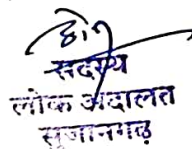 सदस्य
लोक अदालत
सुजानगढ़